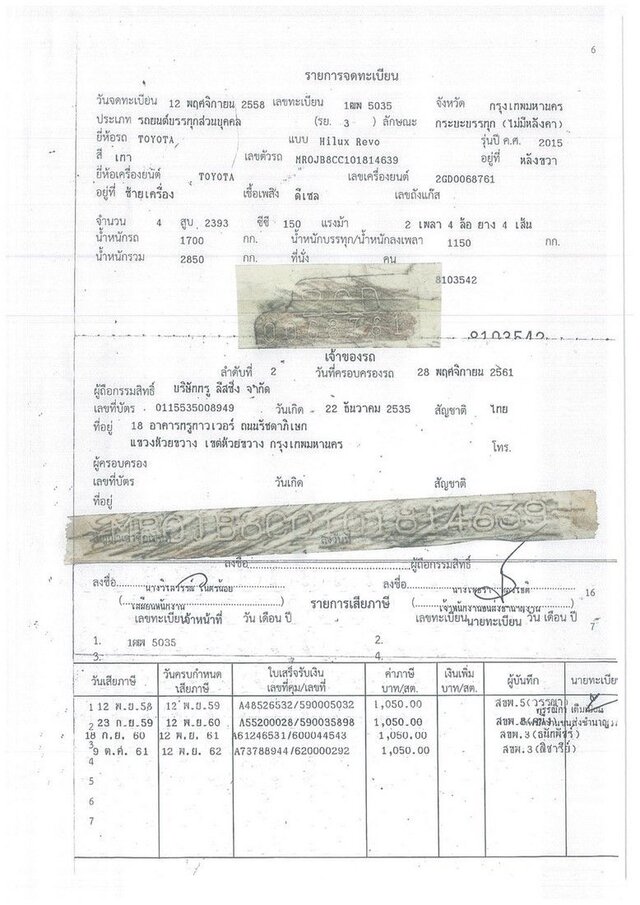 6
รายการจดทะเบียน
วันจดทะเบียน 12 พฤศจิกายน 2558 เลขทะเบียน 1ฒผ 5035 จังหวัด กรุงเทพมหานคร
ประเภท รถยนต์บรรทุกส่วนบุคคล (รย. 3 ) ลักษณะ กระบะบรรทุก (ไม่มีหลังคา)
ยี่ห้อรถ TOYOTA แบบ Hilux Revo รุ่นปี ค.ศ. 2015
สี เทา เลขตัวรถ MR0JB8CC101814639 อยู่ที่ หลังขวา
ยี่ห้อเครื่องยนต์ TOYOTA เลขเครื่องยนต์ 2GD0068761
อยู่ที่ ซ้ายเครื่อง เชื้อเพลิง ดีเซล เลขถังแก๊ส
จำนวน 4 สูบ 2393 ซีซี 150 แรงม้า 2 เพลา 4 ล้อ ยาง 4 เส้น
น้ำหนักรถ 1700 กก. น้ำหนักบรรทุก/น้ำหนักลงเพลา 1150 กก.
น้ำหนักรวม 2850 กก. ที่นั่ง คน
8103542
8103542
เจ้าของรถ
ลำดับที่ 2 วันที่ครอบครองรถ 28 พฤศจิกายน 2561
ผู้ถือกรรมสิทธิ์ บริษัททรู ลีสซิ่ง จำกัด
เลขที่บัตร 0115535008949 วันเกิด 22 ธันวาคม 2535 สัญชาติ ไทย
ที่อยู่ 18 อาคารทรูทาวเวอร์ ถนนรัชดาภิเษก
แขวงห้วยขวาง เขตห้วยขวาง กรุงเทพมหานคร โทร.
ผู้ครอบครอง
เลขที่บัตร วันเกิด สัญชาติ
ที่อยู่
ลงวันที่
ลงชื่อ ผู้ถือกรรมสิทธิ์
ลงชื่อ ลงชื่อ 16
รายการเสียภาษี
เลขทะเบียน เจ้าหน้าที่ วัน เดือน ปี เลขทะเบียน นายทะเบียน วัน เดือน ปี
1. 1ฒผ 5035 2.
3. 4.
วันเสียภาษี วันครบกำหนดเสียภาษี ใบเสร็จรับเงิน เลขที่คุม/เลขที่ ค่าภาษี บาท/สต. เงินเพิ่ม บาท/สต. ผู้บันทึก นายทะเบีย
1 12 พ.ย.58 12 พ.ย.59 A48526532/590005032 1,050.00 สขพ.5(วรรณา)
2 23 ก.ย.59 12 พ.ย.60 A55200028/590035898 1,050.00
3 18 ก.ย. 60 12 พ.ย. 61 A61246531/600044543 1,050.00 สขพ.3(ธนักพัชร์)
9 ต.ค. 61 12 พ.ย. 62 A73788944/620000292 1,050.00 สขพ.3(สิชารีย์)
4
5
6
7